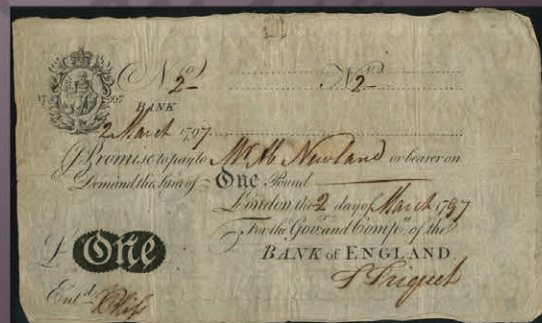 No 2 No 2
17 97
BANK
2 March 1797
I Promise to pay to Mr Ab Newland or bearer on
Demand the Sum of One Pound
London the 2 day of March 1797
For the Govr. and Compa. of the
£ One BANK of ENGLAND
Entd.